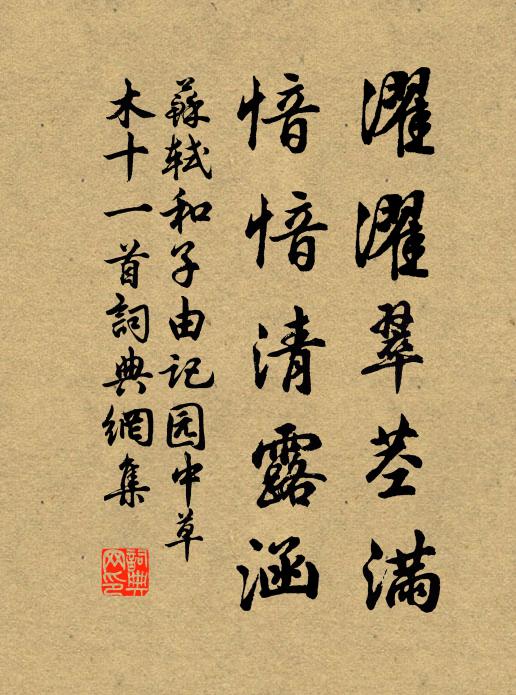 濯濯翠茎滿
愔愔清露涵
蘇軾和子由记园中草
木十一首詞典網集
詞典
网印